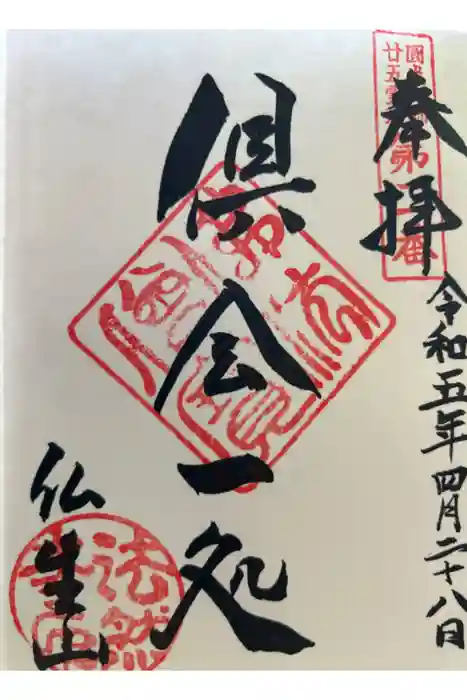 奉拝
令和五年四月二十八日
倶会一処
仏生山
圓光
廿五霊
第
番
法然
寺